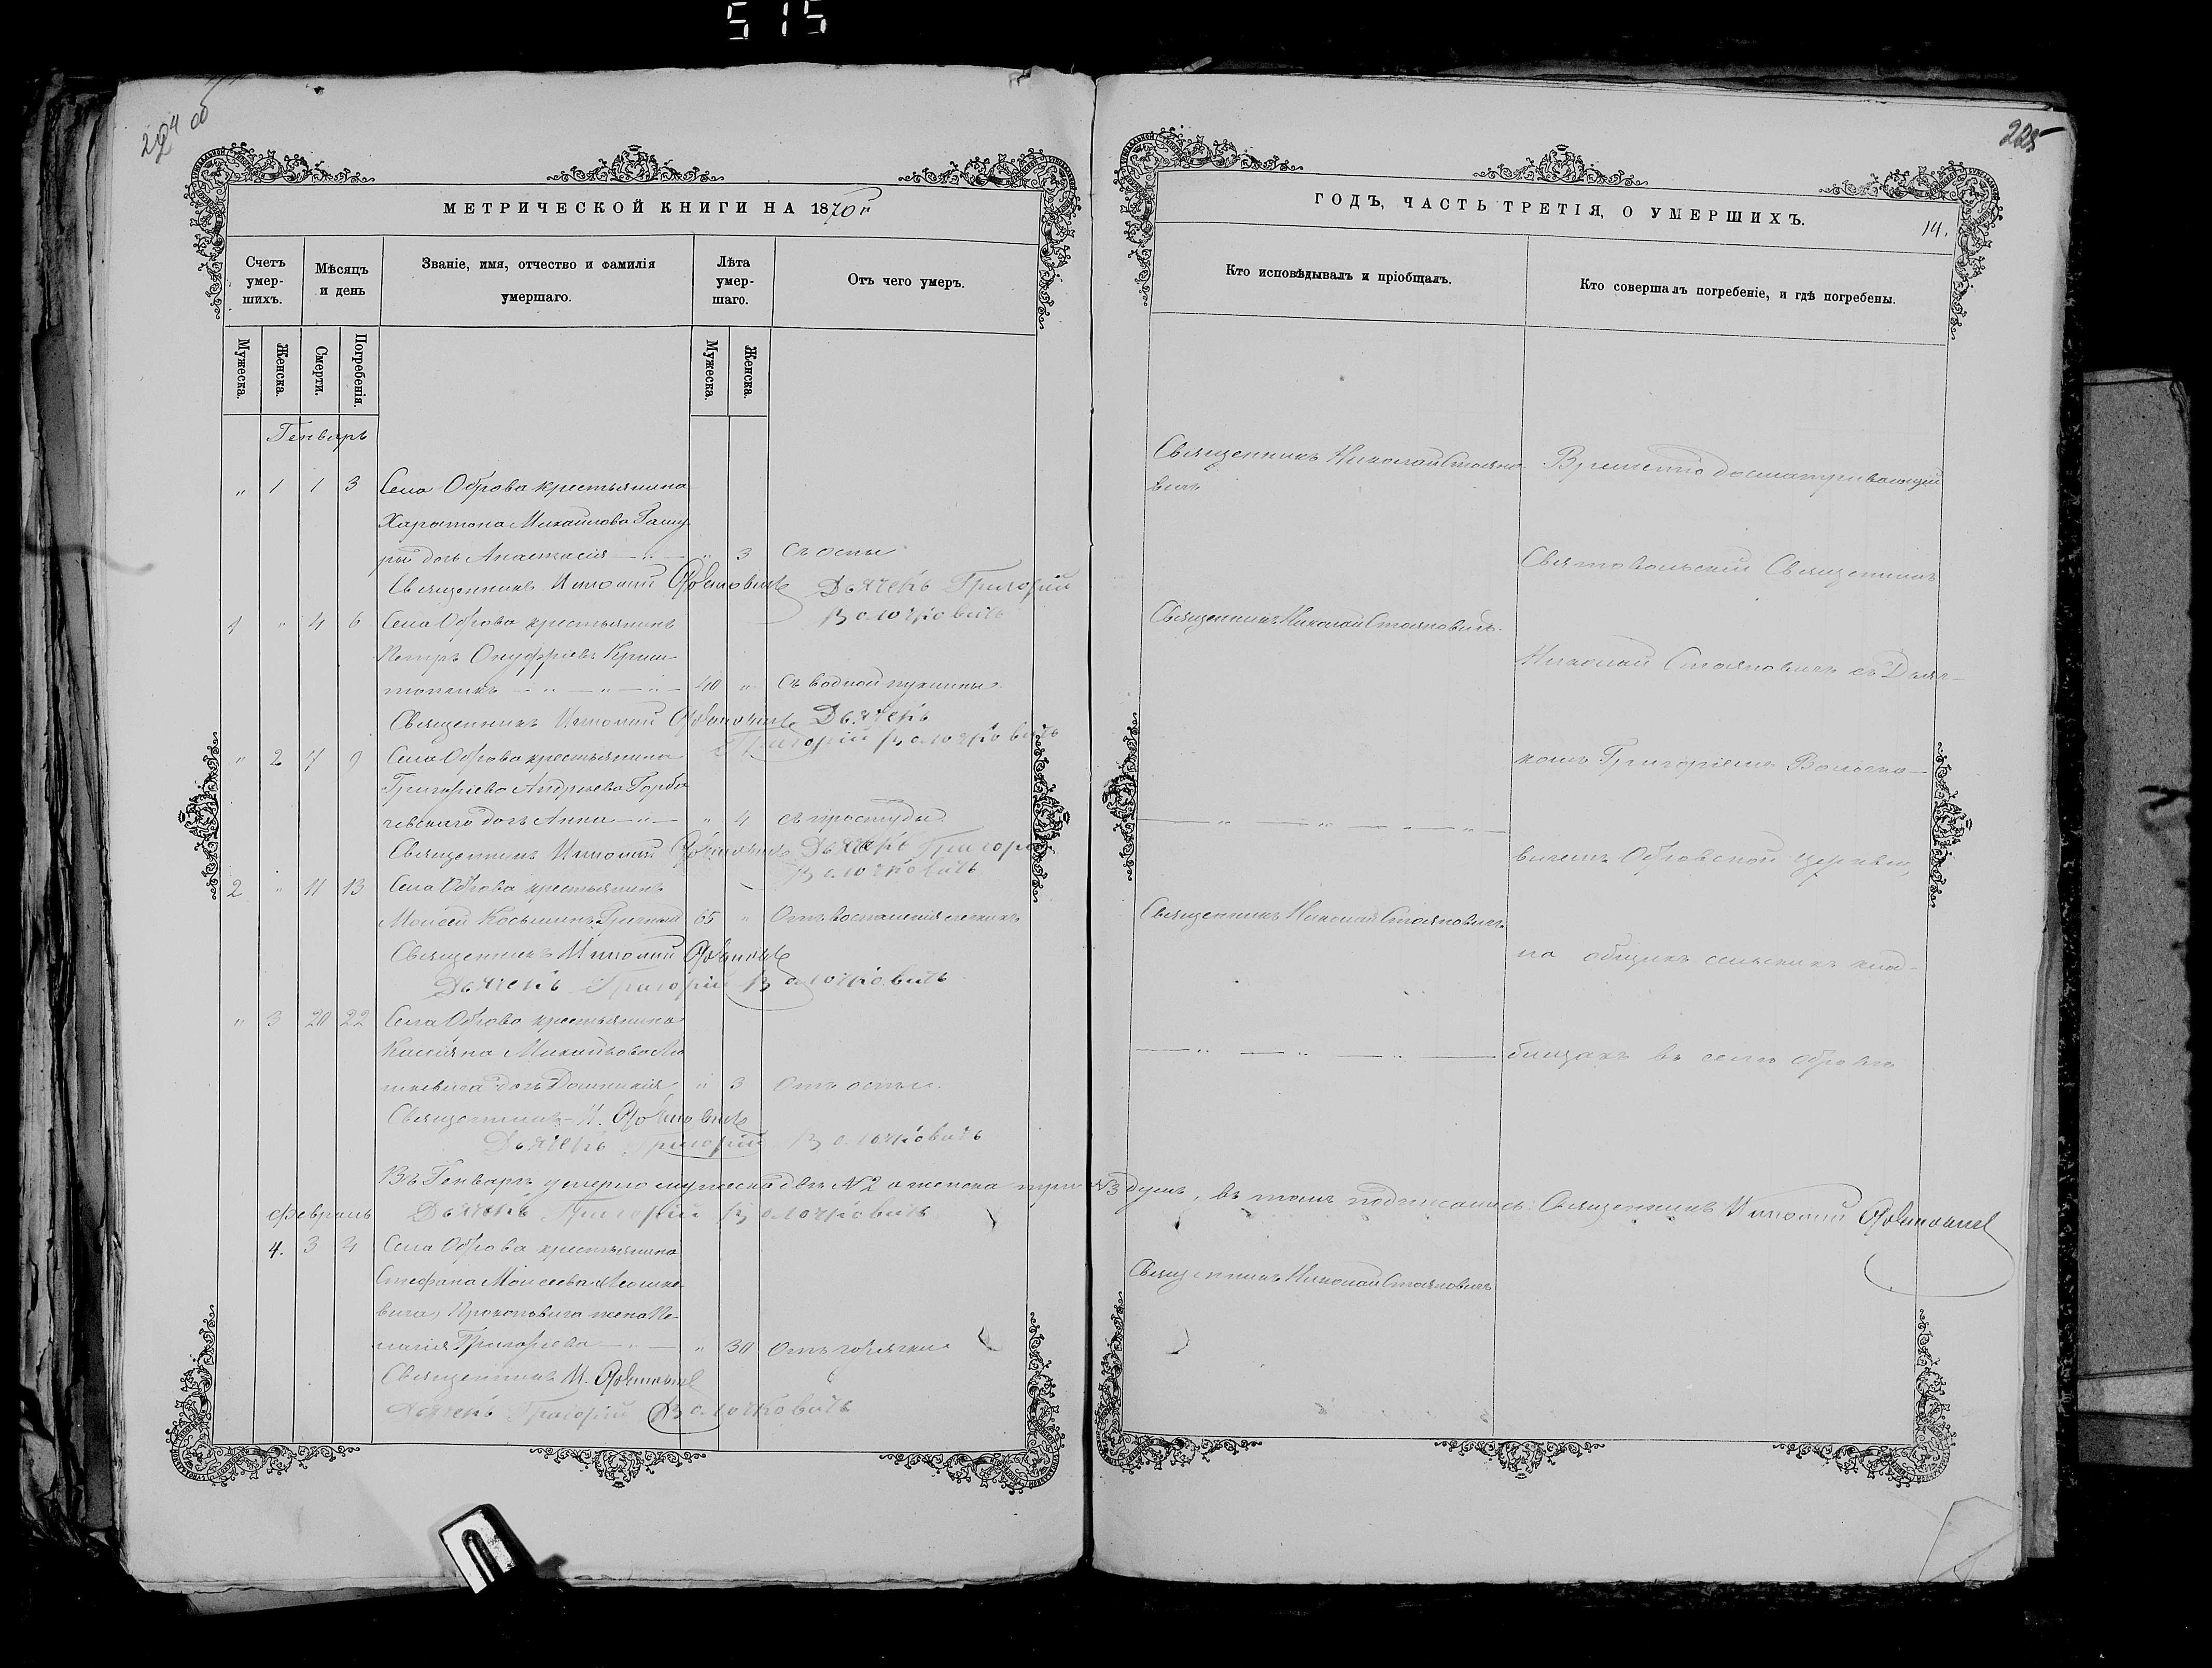 515
224 об
МЕТРИЧЕСКОЙ КНИГИ НА 1870й
Счетъ умер-шихъ.
Мѣсяцъ и день
Званіе, имя, отчество и фамилія умершаго.
Лѣта умер-шаго.
Отъ чего умеръ.
Мужеска.
Женска.
Смерти.
Погребенія.
Мужеска.
Женска.
Генварь
" 1 1 3 Села Оброва крестьянина
Харитона Михайлова
дочь Анастасія " 3 Съ оспы
Священникъ Николай Стояновичъ Дьячекъ Григорій
Волочковичъ
1 " 4 6 Села Оброва крестьянинъ
Петръ Онуфріевъ
40 " Съ водной пухлины
Священникъ Николай Стояновичъ Дьячекъ
Григорій Волочковичъ
" 2 7 9 Села Оброва крестьянина
Григорія Андреева Горба
чевскаго дочь Анна " 4 съ простуды.
Священникъ Николай Стояновичъ Дьячекъ Григорій
Волочковичъ
2 " 11 13 Села Оброва крестьянинъ
Моисей Косьминъ 65 " Отъ воспаленія легкихъ
Священникъ Николай Стояновичъ
Дьячекъ Григорій Волочковичъ
" 3 20 22 Села Оброва крестьянина
Кассіяна Михайлова Ле
шкевича дочь Домникія " 3 Отъ оспы.
Священникъ Н. Стояновичъ
Дьячекъ Григорій Волочковичъ
Въ Генварѣ умерло мужеска двѣ №2 а женска три №3 душъ, въ томъ подписались: Священникъ Николай Стояновичъ
Февраль Дьячекъ Григорій Волочковичъ
4. 3 4 Села Оброва крестьянина
Стефана Моисеева Лешке-
вича, Прокоповича жена Пе-
лагія Григорьева " 30 Отъ горячки
Священникъ Н. Стояновичъ
Дьячекъ Григорій Волочковичъ
225
ГОДЪ, ЧАСТЬ ТРЕТІЯ, О УМЕРШИХЪ.
14.
Кто исповѣдывалъ и пріобщалъ.
Кто совершалъ погребеніе, и гдѣ погребены.
Священникъ Николай Стояно-
вичъ
Священникъ Николай Стояновичъ.
Священникъ Николай Стояновичъ.
Священникъ Николай Стояновичъ
Временно досматривающій
Святовольскій Священникъ
Николай Стояновичъ съ Дьяч-
комъ Григоріемъ Волочко-
вичемъ Обровской церкви,
на общихъ сельскихъ клад-
бищахъ въ селѣ Обровѣ